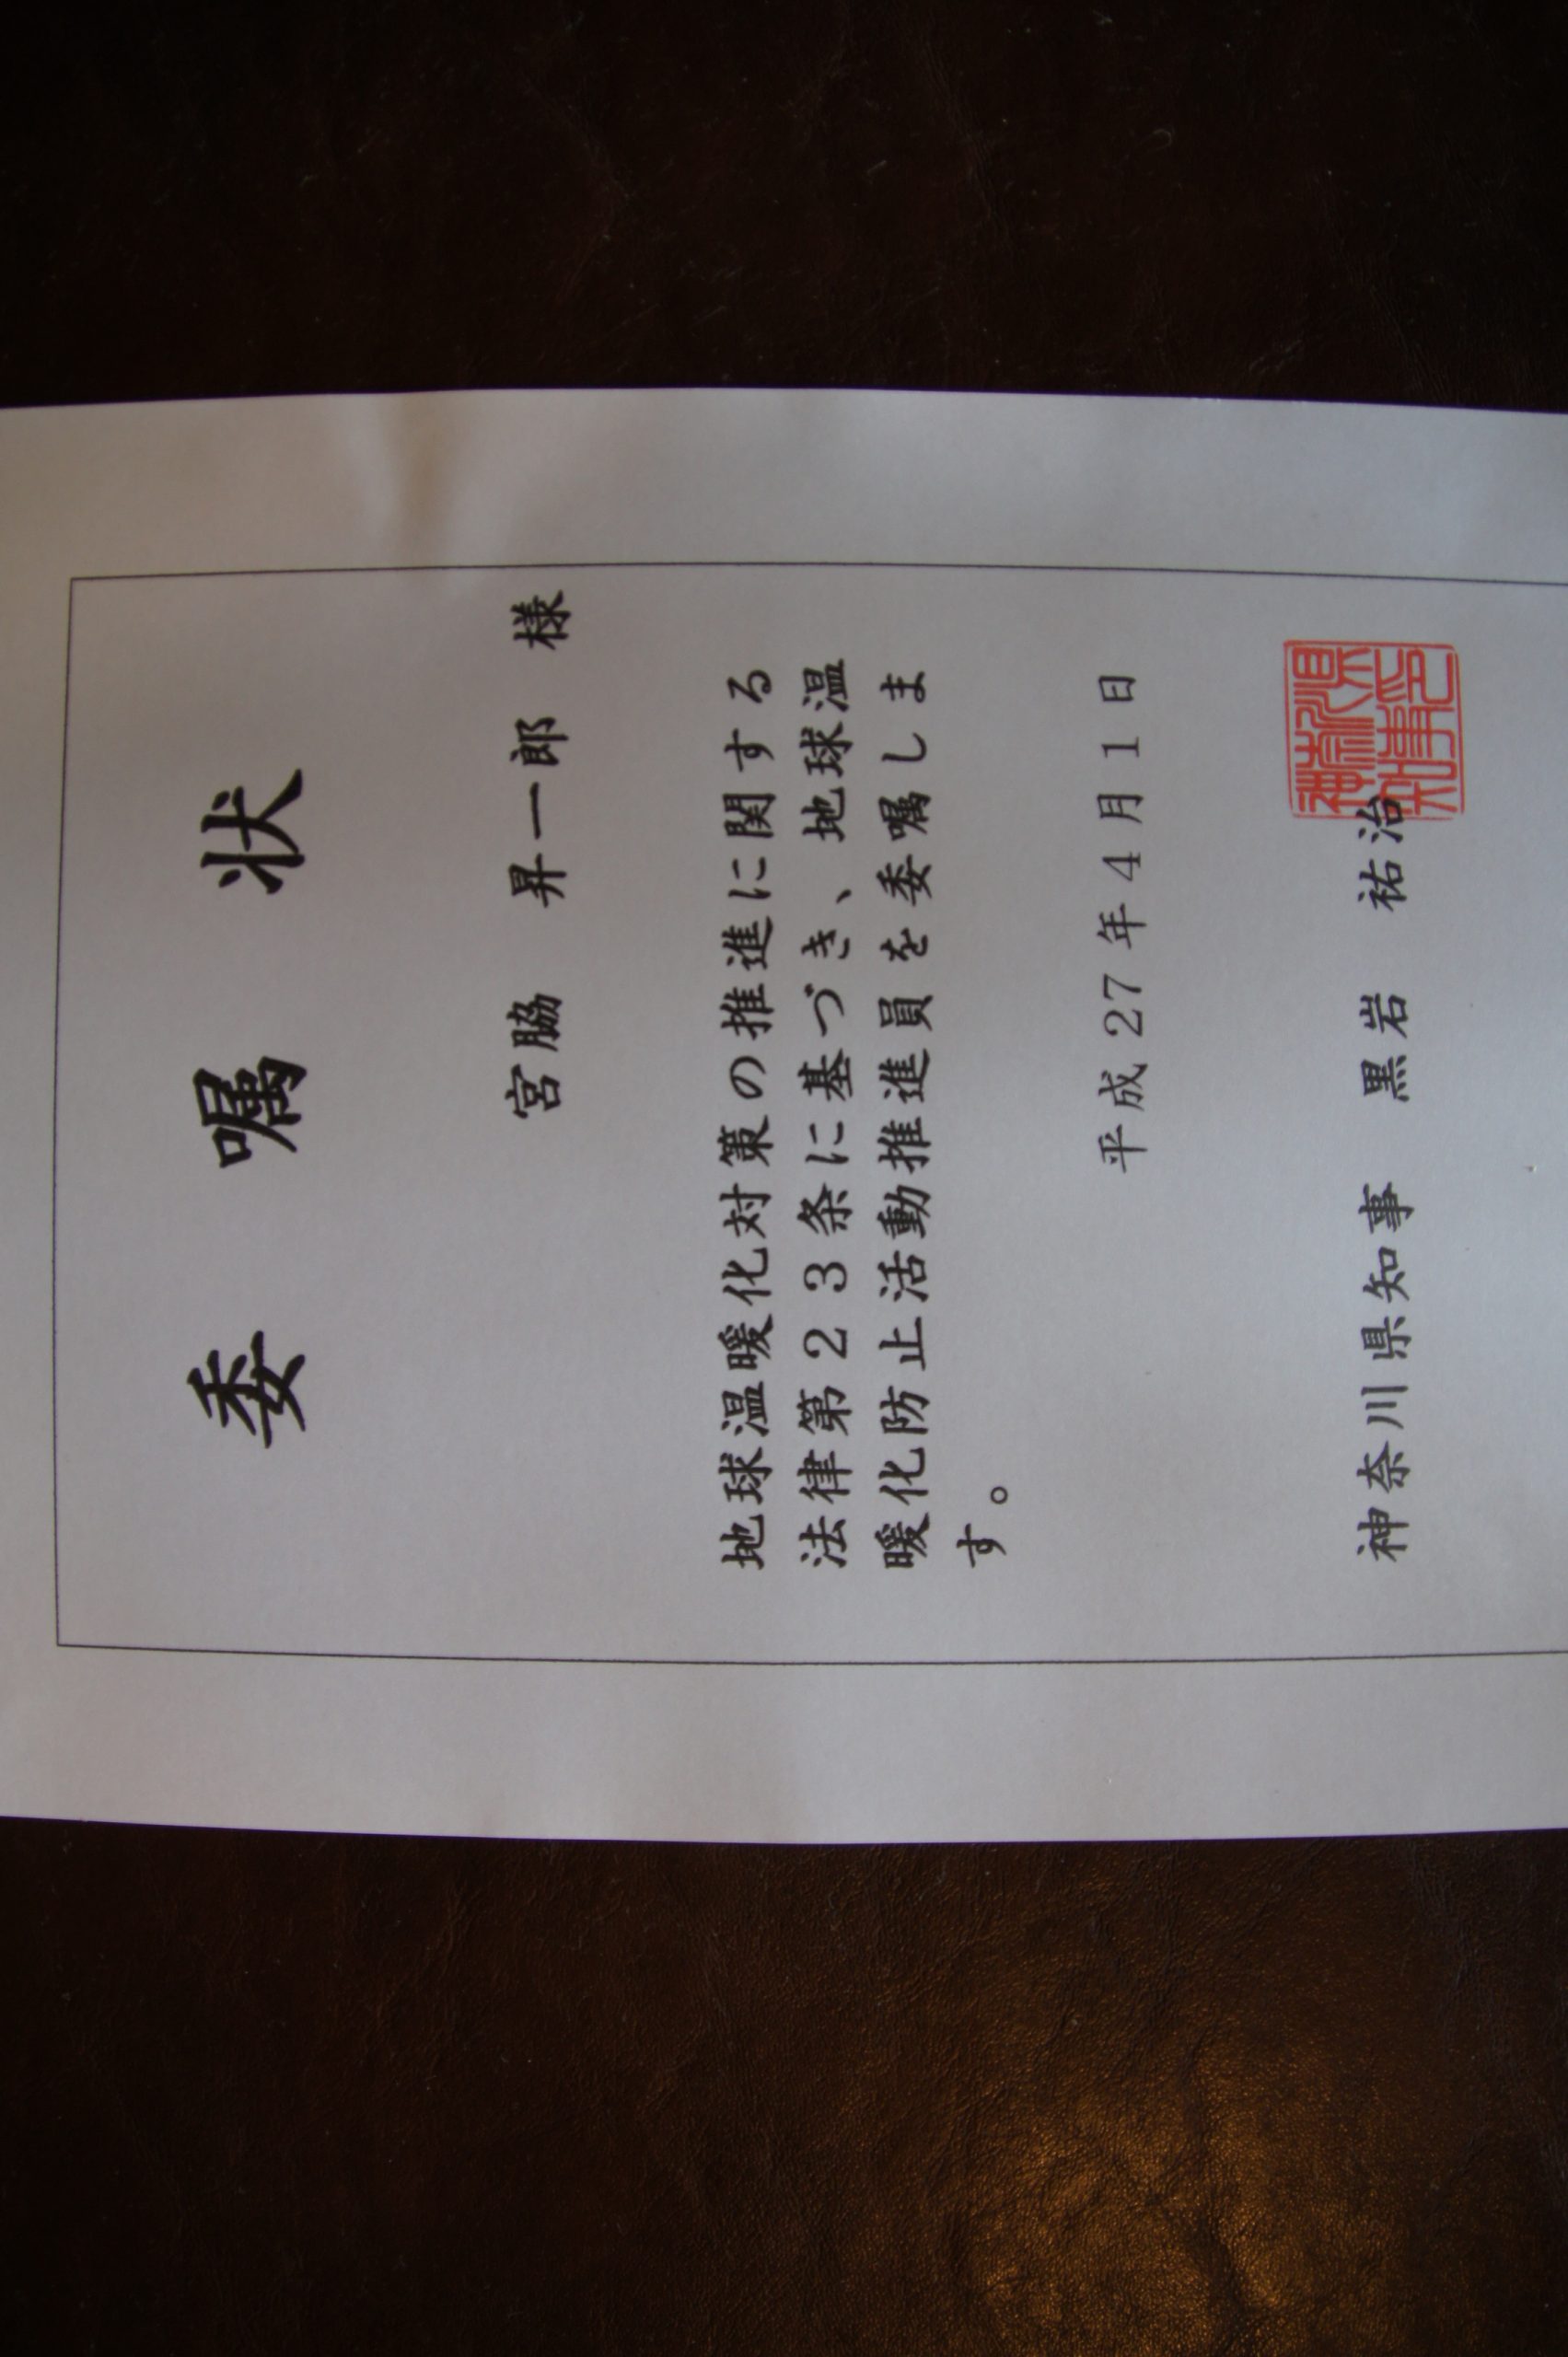 委嘱状
宮脇 昇一郎 様
地球温暖化対策の推進に関する
法律第23条に基づき、地球温
暖化防止活動推進員を委嘱しま
す。
平成27年4月1日
神奈川県知事 黒岩 祐治
神奈川県
知事印